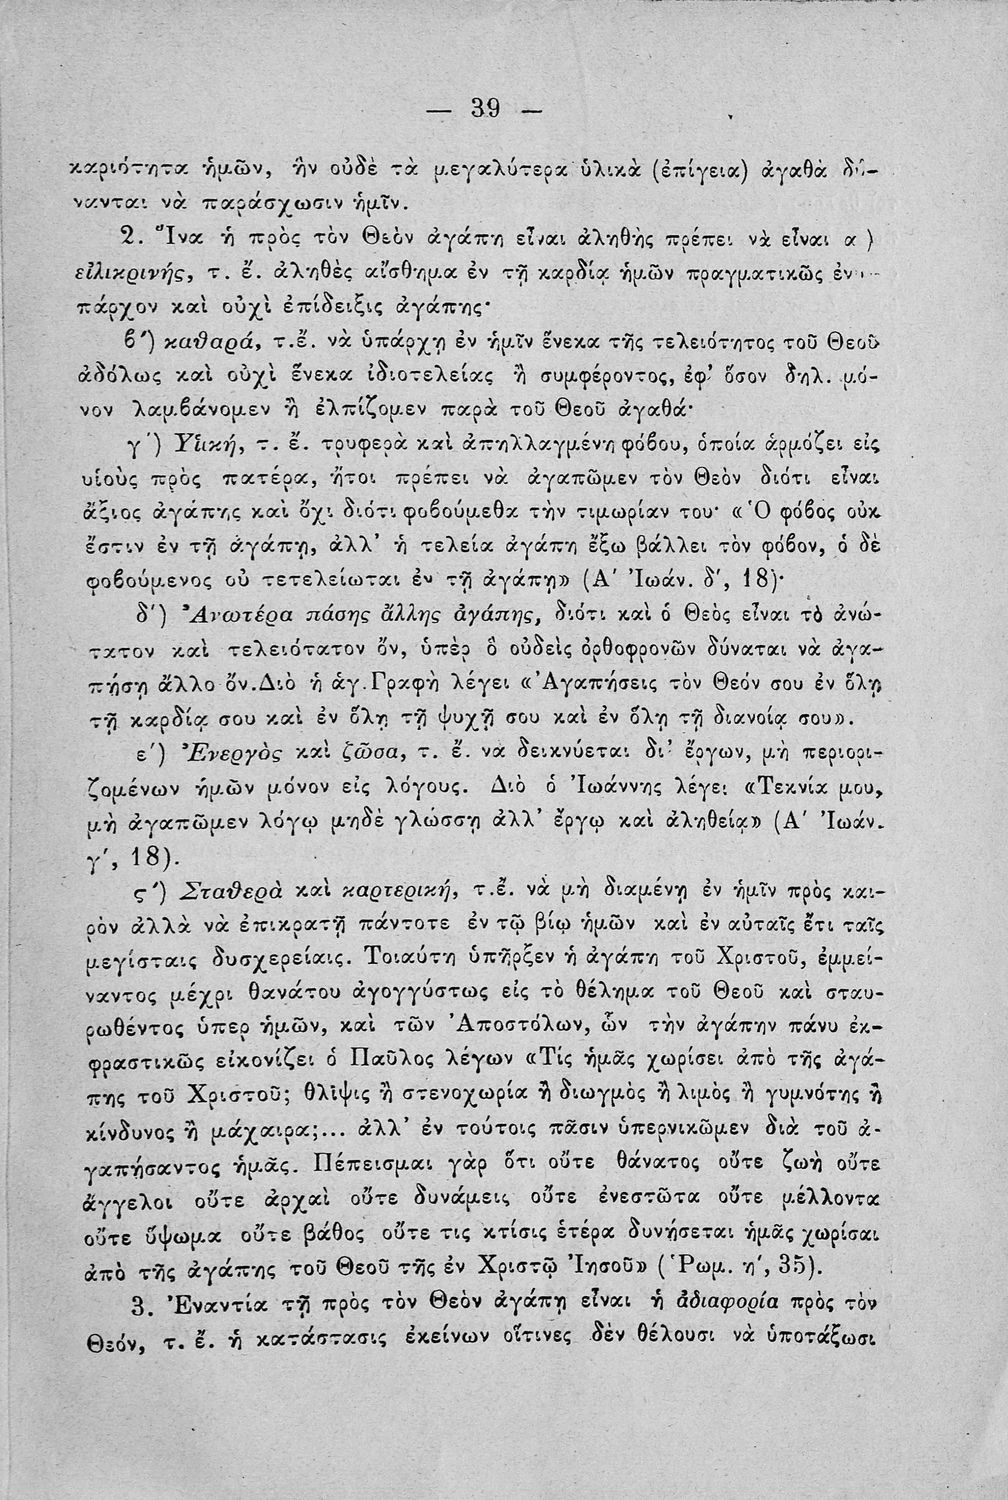 — 39 —
καριότητα ἡμῶν, ἣν οὐδὲ τὰ μεγαλύτερα ὑλικὰ (ἐπίγεια) ἀγαθὰ δύ-
νανται νὰ παράσχωσιν ἡμῖν.
2. Ἵνα ἡ πρὸς τὸν Θεὸν ἀγάπη εἶναι ἀληθὴς πρέπει νὰ εἶναι α)
εἰλικρινής, τ. ἔ. ἀληθὲς αἴσθημα ἐν τῇ καρδίᾳ ἡμῶν πραγματικῶς ἐν-
πάρχον καὶ οὐχὶ ἐπίδειξις ἀγάπης·
β΄) καθαρά, τ.ἔ. νὰ ὑπάρχῃ ἐν ἡμῖν ἕνεκα τῆς τελειότητος τοῦ Θεοῦ
ἀδόλως καὶ οὐχὶ ἕνεκα ἰδιοτελείας ἢ συμφέροντος, ἐφ’ ὅσον δηλ. μό-
νον λαμβάνομεν ἢ ἐλπίζομεν παρὰ τοῦ Θεοῦ ἀγαθά·
γ΄) Υἱική, τ. ἔ. τρυφερὰ καὶ ἀπηλλαγμένη φόβου, ὁποία ἁρμόζει εἰς
υἱοὺς πρὸς πατέρα, ἤτοι πρέπει νὰ ἀγαπῶμεν τὸν Θεὸν διότι εἶναι
ἄξιος ἀγάπης καὶ ὄχι διότι φοβούμεθα τὴν τιμωρίαν του· «Ὁ φόβος οὐκ
ἔστιν ἐν τῇ ἀγάπῃ, ἀλλ’ ἡ τελεία ἀγάπη ἔξω βάλλει τὸν φόβον, ὁ δὲ
φοβούμενος οὐ τετελείωται ἐν τῇ ἀγάπῃ» (Α΄ Ἰωάν. δ΄, 18)·
δ΄) Ἀνωτέρα πάσης ἄλλης ἀγάπης, διότι καὶ ὁ Θεὸς εἶναι τὸ ἀνώ-
τατον καὶ τελειότατον ὄν, ὑπὲρ ὃ οὐδεὶς ὀρθοφρονῶν δύναται νὰ ἀγα-
πήσῃ ἄλλο ὄν.Διὸ ἡ ἁγ.Γραφὴ λέγει «Ἀγαπήσεις τὸν Θεόν σου ἐν ὅλῃ
τῇ καρδίᾳ σου καὶ ἐν ὅλῃ τῇ ψυχῇ σου καὶ ἐν ὅλῃ τῇ διανοίᾳ σου».
ε΄) Ἐνεργὸς καὶ ζῶσα, τ. ἔ. νὰ δεικνύεται δι’ ἔργων, μὴ περιορι-
ζομένων ἡμῶν μόνον εἰς λόγους. Διὸ ὁ Ἰωάννης λέγει «Τεκνία μου,
μὴ ἀγαπῶμεν λόγῳ μηδὲ γλώσσῃ ἀλλ’ ἔργῳ καὶ ἀληθείᾳ» (Α΄ Ἰωάν.
γ΄, 18).
ς΄) Σταθερὰ καὶ καρτερική, τ.ἔ. νὰ μὴ διαμένῃ ἐν ἡμῖν πρὸς και-
ρὸν ἀλλὰ νὰ ἐπικρατῇ πάντοτε ἐν τῷ βίῳ ἡμῶν καὶ ἐν αὐταῖς ἔτι ταῖς
μεγίσταις δυσχερείαις. Τοιαύτη ὑπῆρξεν ἡ ἀγάπη τοῦ Χριστοῦ, ἐμμεί-
ναντος μέχρι θανάτου ἀγογγύστως εἰς τὸ θέλημα τοῦ Θεοῦ καὶ σταυ-
ρωθέντος ὑπερ ἡμῶν, καὶ τῶν Ἀποστόλων, ὧν τὴν ἀγάπην πάνυ ἐκ-
φραστικῶς εἰκονίζει ὁ Παῦλος λέγων «Τίς ἡμᾶς χωρίσει ἀπὸ τῆς ἀγά-
πης τοῦ Χριστοῦ; θλῖψις ἢ στενοχωρία ἢ διωγμὸς ἢ λιμὸς ἢ γυμνότης ἢ
κίνδυνος ἢ μάχαιρα;... ἀλλ’ ἐν τούτοις πᾶσιν ὑπερνικῶμεν διὰ τοῦ ἀ-
γαπήσαντος ἡμᾶς. Πέπεισμαι γὰρ ὅτι οὔτε θάνατος οὔτε ζωὴ οὔτε
ἄγγελοι οὔτε ἀρχαὶ οὔτε δυνάμεις οὔτε ἐνεστῶτα οὔτε μέλλοντα
οὔτε ὕψωμα οὔτε βάθος οὔτε τις κτίσις ἑτέρα δυνήσεται ἡμᾶς χωρίσαι
ἀπὸ τῆς ἀγάπης τοῦ Θεοῦ τῆς ἐν Χριστῷ Ἰησοῦ» (Ῥωμ. η΄, 35).
3. Ἐναντία τῇ πρὸς τὸν Θεὸν ἀγάπῃ εἶναι ἡ ἀδιαφορία πρὸς τὸν
Θεόν, τ. ἔ. ἡ κατάστασις ἐκείνων οἵτινες δὲν θέλουσι νὰ ὑποτάξωσι